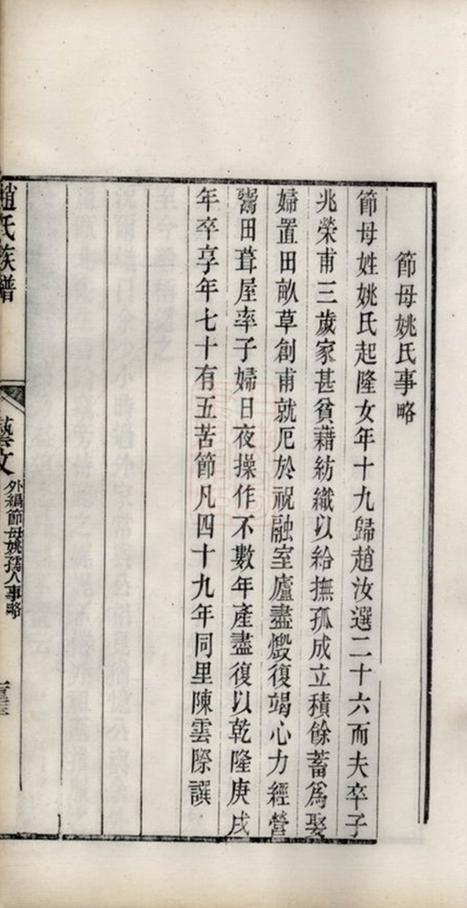 節母姚氏事略
節母姓姚氏起隆女年十九歸趙汝選二十六而夫卒子
兆榮甫三歲家甚貧藉紡織以給撫孤成立積餘蓄爲娶
婦置田畝草創甫就厄於祝融室廬盡燬復竭心力經營
鬻田葺屋率子婦日夜操作不數年產盡復以乾隆庚戌
年卒享年七十有五苦節凡四十九年同里陳雲際譔
趙氏族譜
藝文
外編節母姚孺人事略